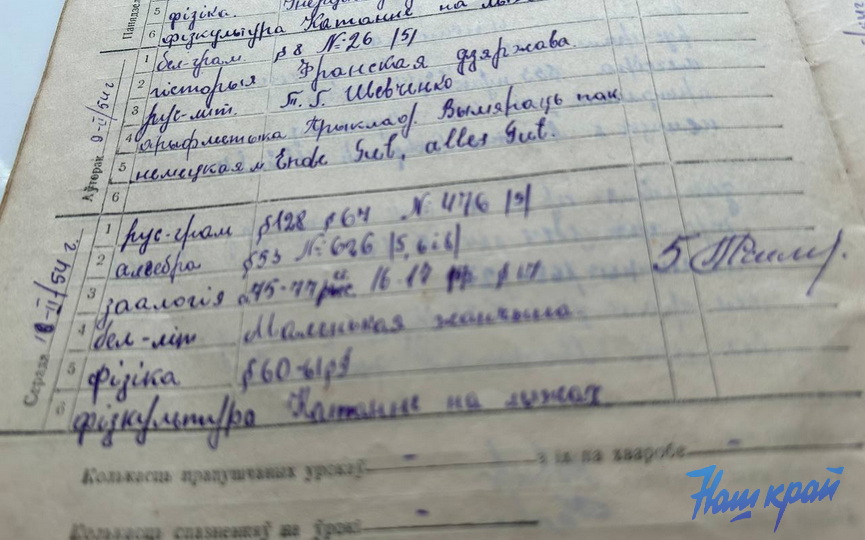 Панядзе
5 фізіка.
6 фізкультура Катанне на лыжах
Аўторак 9-II/54 г
1 бел-грам §8 № 26 |5|
2 гісторыя Франская дзяржава
3 рус-літ. Т. Г. Шевченко
4 арыфметыка Прыклад. Вымяраць пак
5 немецкая м Ende Gut, alles Gut.
6
Серада 10-II/54 г.
1 рус-грам §128 §64 № 476 |3|
2 алгебра §53 № 626 |5, 6 і 8|
3 заалогія 16-17 §17 5
4 бел-літ Маленькая жанчына
5 фізіка §60-61
6 фізкультура Катанне на лыжах
Колькасць прапушчаных урокаў - з іх па хваробе -
Колькасць спазненняў на ўрокі -
Наш край